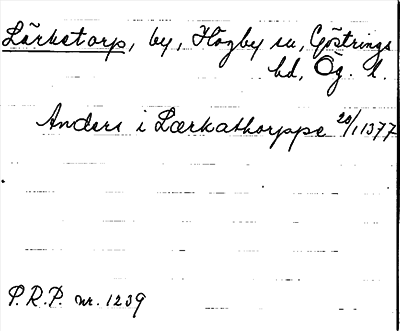 Lärkstorp, by, Högby sn, Göstrings
hd, Ög. l.
Anders i Lærkathorppe 20/1 1377
P.R.P. nr. 1239